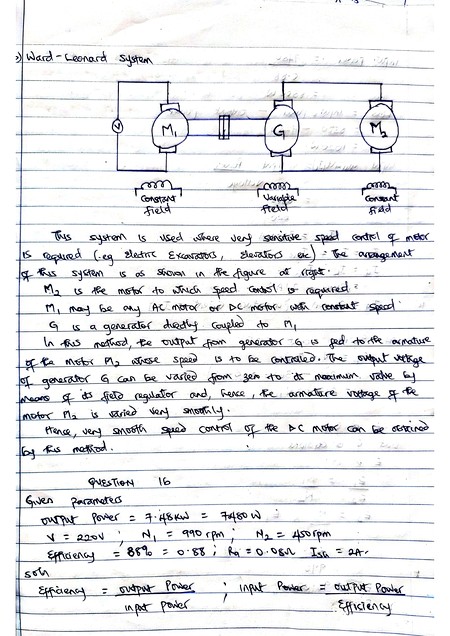 Ward-Leonard system
V
M1
G
M2
Constant field
Variable field
Constant field
This system is used where very sensitive speed control of motor
is required (e.g eletric Excavators, elevators etc). The arrangement
of this system is as shown in the figure at right.
M2 is the motor to which speed control is required.
M1 may be any AC motor or DC motor with constant speed.
G is a generator directly coupled to M1
In this method, the output from generator G is fed to the armature
of the motor M2 whose speed is to be controlled. The output voltage
of generator G can be varied from zero to its maximum value by
means of its field regulator and, hence, the armature voltage of the
motor M2 is varied very smoothly.
Hence, very smooth speed control of the DC motor can be obtained
by this method.
QUESTION 16
Given parameters
output Power = 7.48kW = 7480W
V = 220V ; N1 = 990rpm ; N2 = 450rpm
Efficiency = 88% = 0.88 ; Ra = 0.08Ω Ish = 2A.
soln
Efficiency = output Power / input power ; input Power = output Power / Efficiency